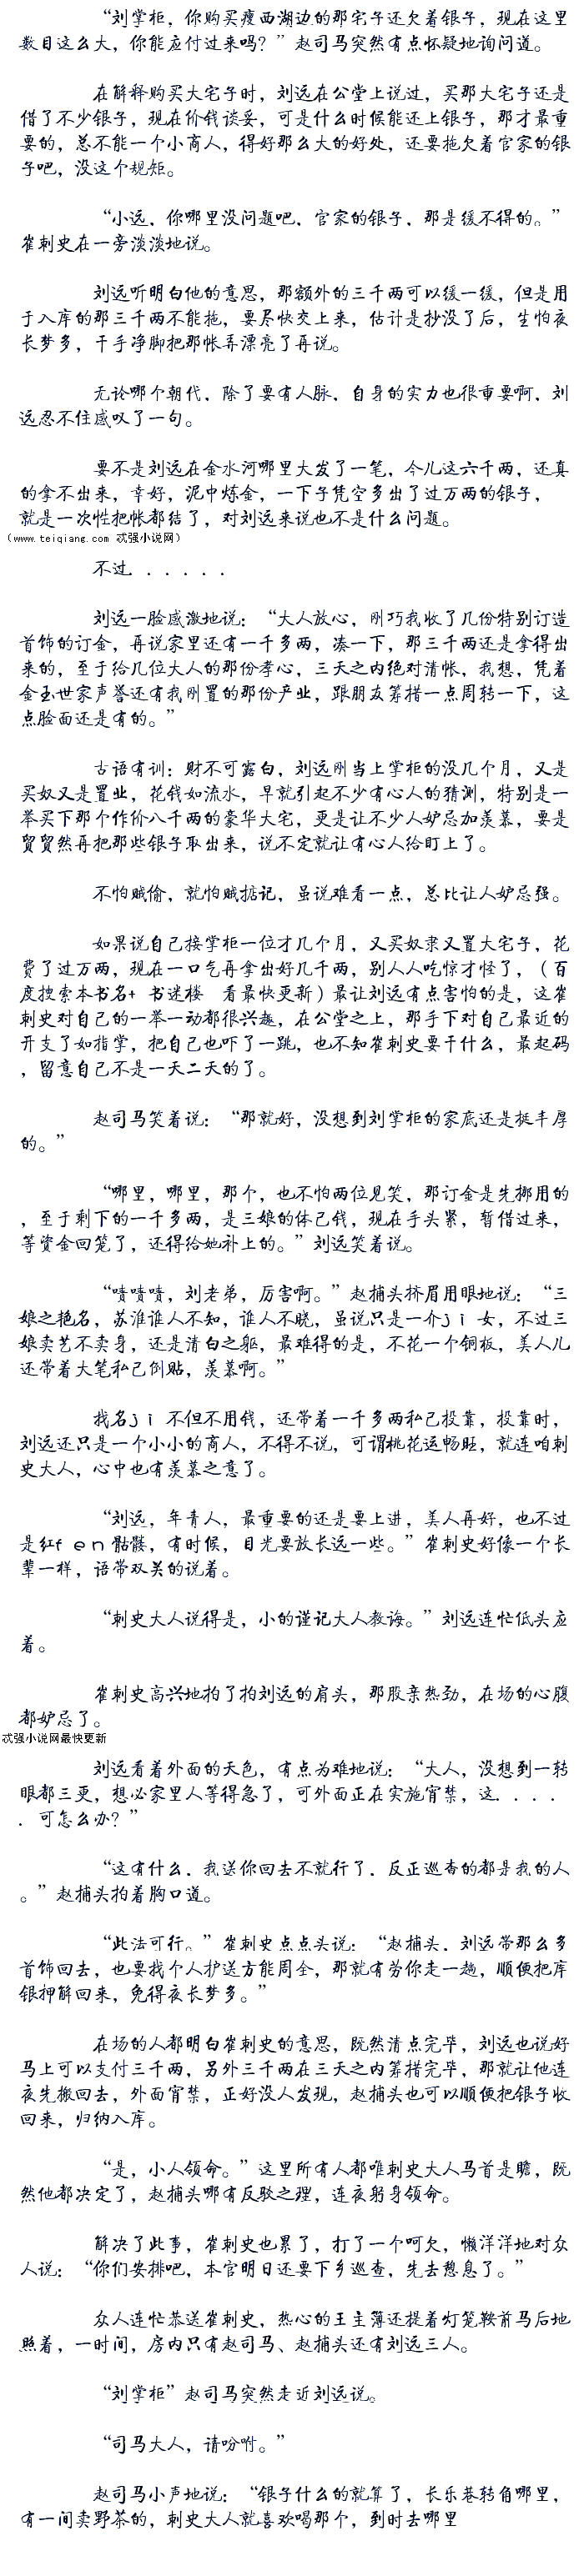 “刘掌柜，你购买瘦西湖边的那宅子还欠着银子，现在这里
数目这么大，你能应付过来吗？”赵司马突然有点怀疑地询问道。
在解释购买大宅子时，刘远在公堂上说过，买那大宅子还是
借了不少银子，现在价钱谈妥，可是什么时候能还上银子，那才最重
要的，总不能一个小商人，得好那么大的好处，还要拖欠着官家的银
子吧，没这个规矩。
“小远，你哪里没问题吧，官家的银子，那是缓不得的。”
崔刺史在一旁淡淡地说。
刘远听明白他的意思，那额外的三千两可以缓一缓，但是用
于入库的那三千两不能拖，要尽快交上来，估计是抄没了后，生怕夜
长梦多，干手净脚把那帐弄漂亮了再说。
无论哪个朝代，除了要有人脉，自身的实力也很重要啊，刘
远忍不住感叹了一句。
要不是刘远在金水河哪里大发了一笔，今儿这六千两，还真
的拿不出来，幸好，泥中炼金，一下子凭空多出了过万两的银子，
就是一次性把帐都结了，对刘远来说也不是什么问题。
（www.teiqiang.com 忒强小说网）
不过．．．．．．
刘远一脸感激地说：“大人放心，刚巧我收了几份特别订造
首饰的订金，再说家里还有一千多两，凑一下，那三千两还是拿得出
来的，至于给几位大人的那份孝心，三天之内绝对清帐，我想，凭着
金玉世家声誉还有我刚置的那份产业，跟朋友筹措一点周转一下，这
点脸面还是有的。”
古语有训：财不可露白，刘远刚当上掌柜的没几个月，又是
买奴又是置业，花钱如流水，早就引起不少有心人的猜测，特别是一
举买下那个作价八千两的豪华大宅，更是让不少人妒忌加羡慕，要是
贸贸然再把那些银子取出来，说不定就让有心人给盯上了。
不怕贼偷，就怕贼掂记，虽说难看一点，总比让人妒忌强。
如果说自己接掌柜一位才几个月，又买奴隶又置大宅子，花
费了过万两，现在一口气再拿出好几千两，别人人吃惊才怪了，（百
度搜索本书名+ 书迷楼　看最快更新）最让刘远有点害怕的是，这崔
刺史对自己的一举一动都很兴趣，在公堂之上，那手下对自己最近的
开支了如指掌，把自己也吓了一跳，也不知崔刺史要干什么，最起码
，留意自己不是一天二天的了。
赵司马笑着说：“那就好，没想到刘掌柜的家底还是挺丰厚
的。”
“哪里，哪里，那个，也不怕两位见笑，那订金是先挪用的
，至于剩下的一千多两，是三娘的体己钱，现在手头紧，暂借过来，
等资金回笼了，还得给她补上的。”刘远笑着说。
“啧啧啧，刘老弟，厉害啊。”赵捕头挤眉用眼地说：“三
娘之艳名，苏淮谁人不知，谁人不晓，虽说只是一介ｊì女，不过三
娘卖艺不卖身，还是清白之躯，最难得的是，不花一个铜板，美人儿
还带着大笔私己倒贴，羡慕啊。”
找名ｊì不但不用钱，还带着一千多两私己投靠，投靠时，
刘远还只是一个小小的商人，不得不说，可谓桃花运畅旺，就连咱刺
史大人，心中也有羡慕之意了。
“刘远，年青人，最重要的还是要上进，美人再好，也不过
是红ｆｅｎ骷髅，有时候，目光要放长远一些。”崔刺史好像一个长
辈一样，语带双关的说着。
“刺史大人说得是，小的谨记大人教诲。”刘远连忙低头应
着。
崔刺史高兴地拍了拍刘远的肩头，那股亲热劲，在场的心腹
都妒忌了。
忒强小说网最快更新
刘远看着外面的天色，有点为难地说：“大人，没想到一转
眼都三更，想必家里人等得急了，可外面正在实施宵禁，这．．．．
．可怎么办？”
“这有什么，我送你回去不就行了，反正巡查的都是我的人
。”赵捕头拍着胸口道。
“此法可行。”崔刺史点点头说：“赵捕头，刘远带那么多
首饰回去，也要找个人护送方能周全，那就有劳你走一趟，顺便把库
银押解回来，免得夜长梦多。”
在场的人都明白崔刺史的意思，既然清点完毕，刘远也说好
马上可以支付三千两，另外三千两在三天之内筹措完毕，那就让他连
夜先搬回去，外面宵禁，正好没人发现，赵捕头也可以顺便把银子收
回来，归纳入库。
“是，小人领命。”这里所有人都唯刺史大人马首是瞻，既
然他都决定了，赵捕头哪有反驳之理，连夜躬身领命。
解决了此事，崔刺史也累了，打了一个呵欠，懒洋洋地对众
人说：“你们安排吧，本官明日还要下乡巡查，先去憩息了。”
众人连忙恭送崔刺史，热心的王主簿还提着灯笼鞍前马后地
照着，一时间，房内只有赵司马、赵捕头还有刘远三人。
“刘掌柜”赵司马突然走近刘远说。
“司马大人，请吩咐。”
赵司马小声地说：“银子什么的就算了，长乐巷转角哪里，
有一间卖野茶的，刺史大人就喜欢喝那个，到时去哪里